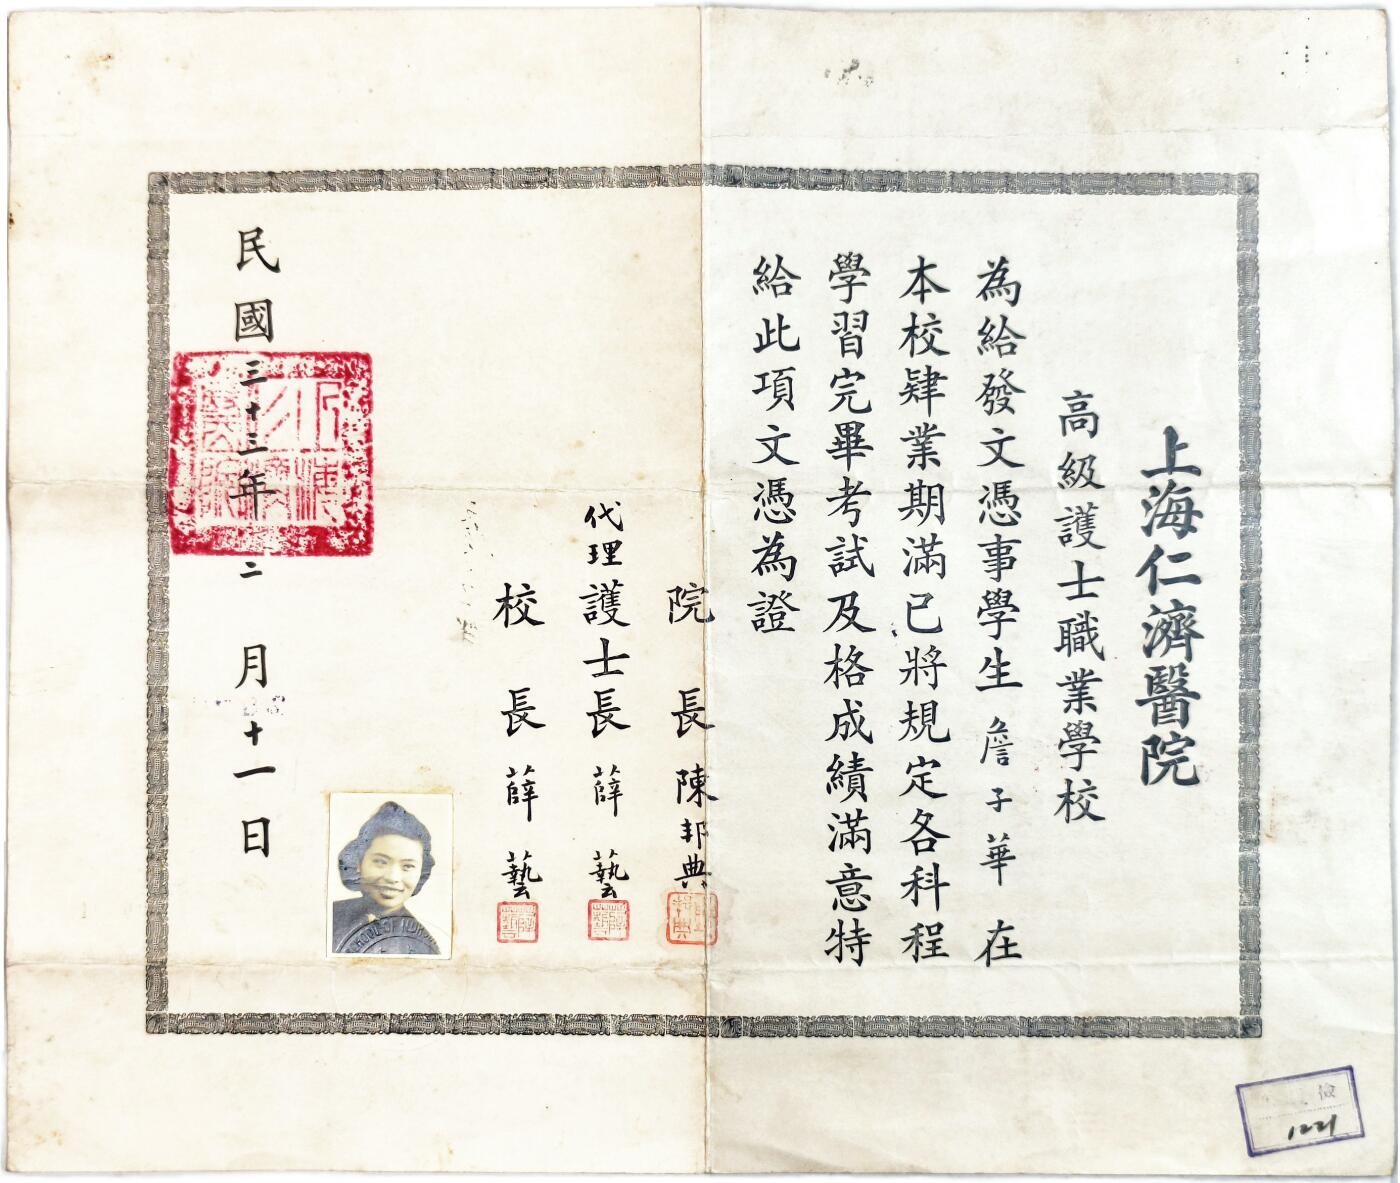 上海仁濟醫院
高級護士職業學校
為給發文憑事學生詹子華在
本校肄業期滿已將規定各科程
學習完畢考試及格成績滿意特
給此項文憑為證
院長陳邦典
代理護士長薛藝
校長薛藝
民國三十三年二月十一日
SCHOOL OF NURS
檢
1221